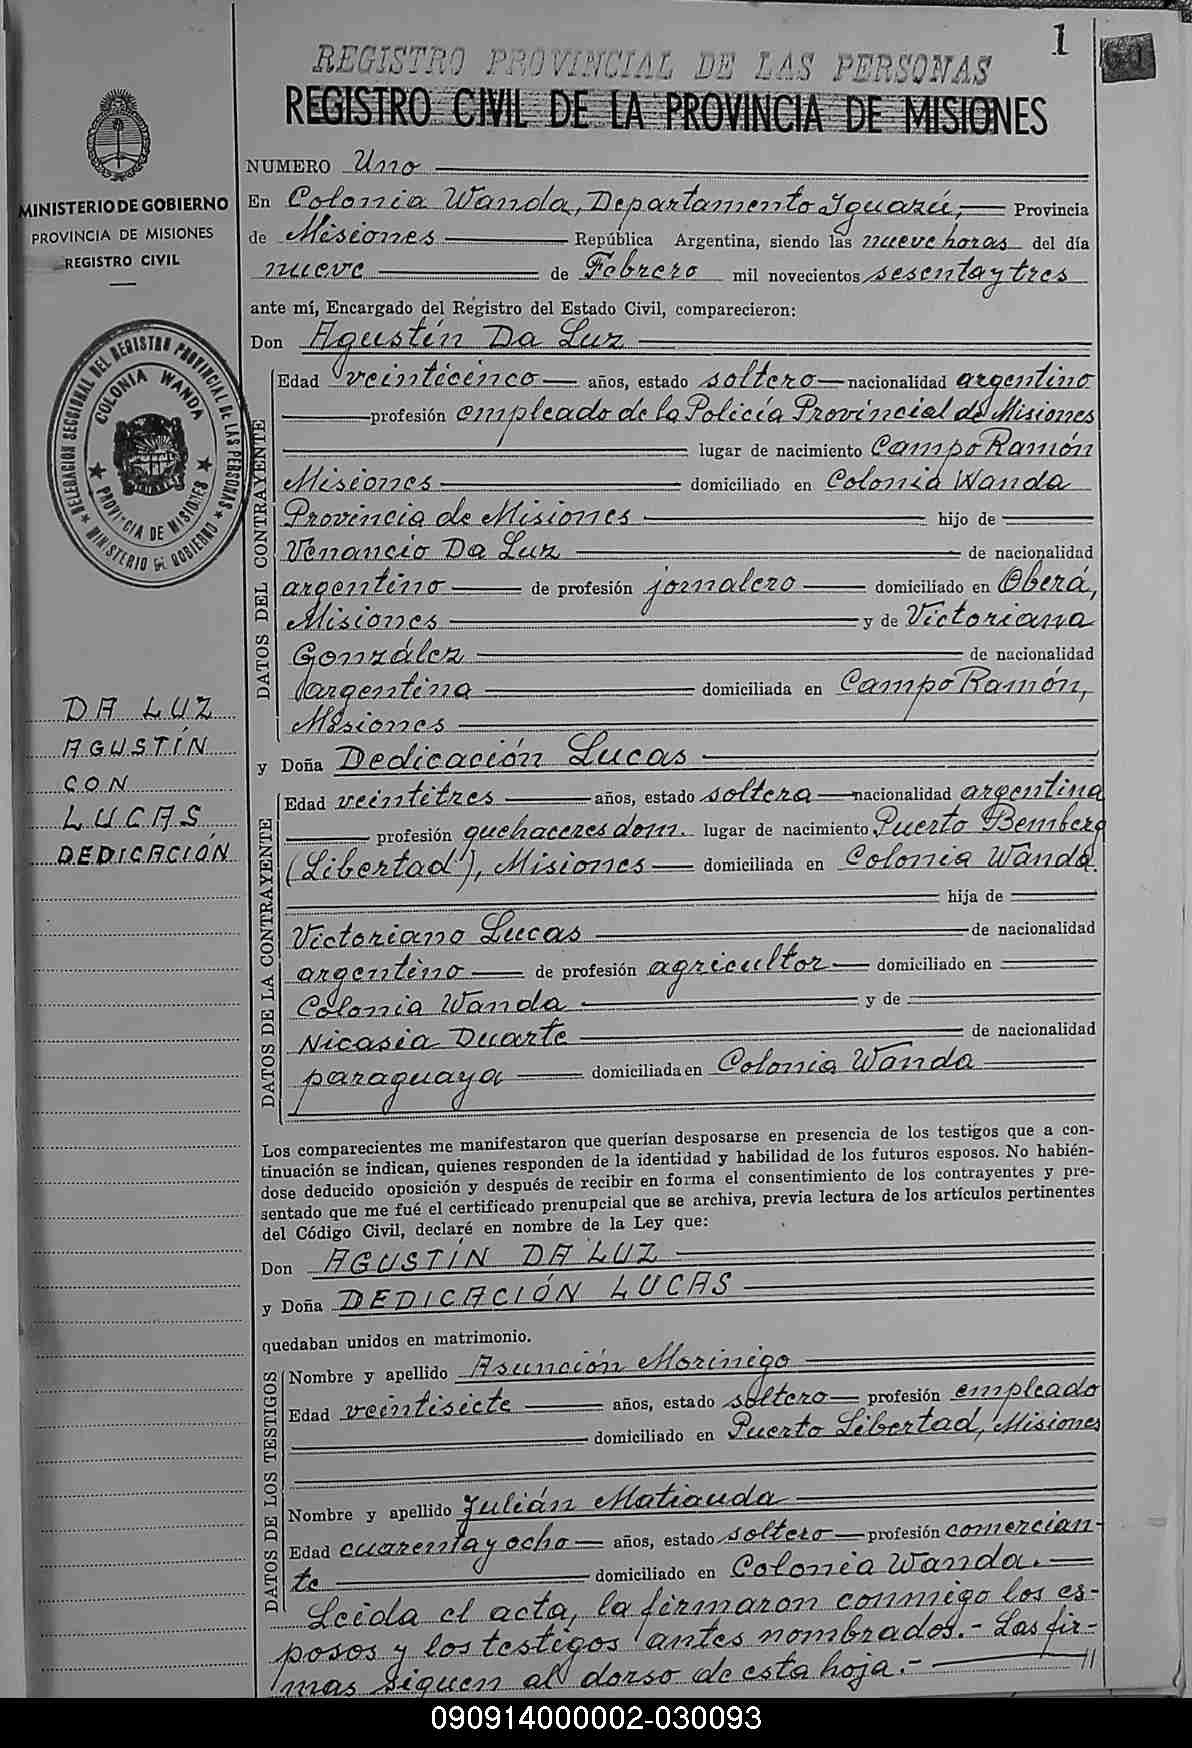 1
REGISTRO PROVINCIAL DE LAS PERSONAS
REGISTRO CIVIL DE LA PROVINCIA DE MISIONES
MINISTERIO DE GOBIERNO
PROVINCIA DE MISIONES
REGISTRO CIVIL
DELEGACION SECCIONAL DEL REGISTRO PROVINCIAL DE LAS PERSONAS
MINISTERIO DE GOBIERNO
COLONIA WANDA
PROVINCIA DE MISIONES
DA LUZ
AGUSTÍN
CON
LUCAS,
DEDICACIÓN
NUMERO Uno
En Colonia Wanda, Departamento Iguazú, Provincia
de Misiones República Argentina, siendo las nueve horas del día
nueve de Febrero mil novecientos sesenta y tres
ante mí, Encargado del Registro del Estado Civil, comparecieron:
Don Agustín Da Luz
DATOS DEL CONTRAYENTE
Edad veinticinco años, estado soltero nacionalidad argentino
profesión empleado de la Policía Provincial de Misiones
lugar de nacimiento Campo Ramón
Misiones domiciliado en Colonia Wanda
Provincia de Misiones hijo de
Venancio Da Luz de nacionalidad
argentino de profesión jornalero domiciliado en Oberá,
Misiones y de Victoriana
González de nacionalidad
argentina domiciliada en Campo Ramón,
Misiones
y Doña Dedicación Lucas
DATOS DE LA CONTRAYENTE
Edad veintitres años, estado soltera nacionalidad argentina
profesión quehaceres dom. lugar de nacimiento Puerto Bemberg
(Libertad), Misiones domiciliada en Colonia Wanda.
hija de
Victoriano Lucas de nacionalidad
argentino de profesión agricultor domiciliado en
Colonia Wanda y de
Nicasia Duarte de nacionalidad
paraguaya domiciliada en Colonia Wanda
Los comparecientes me manifestaron que querían desposarse en presencia de los testigos que a con-
tinuación se indican, quienes responden de la identidad y habilidad de los futuros esposos. No habién-
dose deducido oposición y después de recibir en forma el consentimiento de los contrayentes y pre-
sentado que me fué el certificado prenupcial que se archiva, previa lectura de los artículos pertinentes
del Código Civil, declaré en nombre de la Ley que:
Don AGUSTÍN DA LUZ
y Doña DEDICACIÓN LUCAS
quedaban unidos en matrimonio.
DATOS DE LOS TESTIGOS
Nombre y apellido Asunción Morinigo
Edad veintisiete años, estado soltero profesión empleado
domiciliado en Puerto Libertad, Misiones
Nombre y apellido Julián Matiauda
Edad cuarenta y ocho años, estado soltero profesión comercian-
te domiciliado en Colonia Wanda.
Leida el acta, la firmaron conmigo los es-
posos y los testigos antes nombrados.- Las fir-
mas siguen al dorso de esta hoja.- //
090914000002-030093